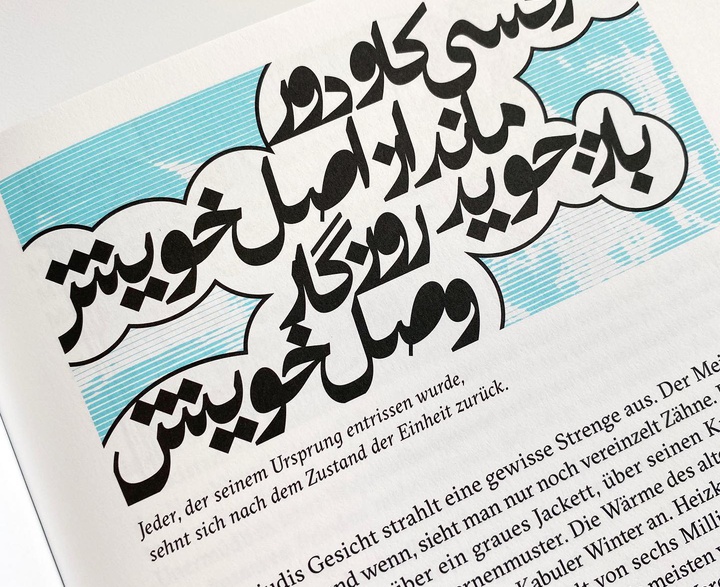 کسی کاو دور
ماند از اصل خویش
باز جوید روزگار
وصل خویش
Jeder, der seinem Ursprung entrissen wurde,
sehnt sich nach dem Zustand der Einheit zurück.
Gesicht strahlt eine gewisse Strenge aus. Der
wenn, sieht man nur noch vereinzelt Zähne.
über ein graues Jackett, über seinen
Die Wärme des
Kabuler Winter an.
von sechs
meisten